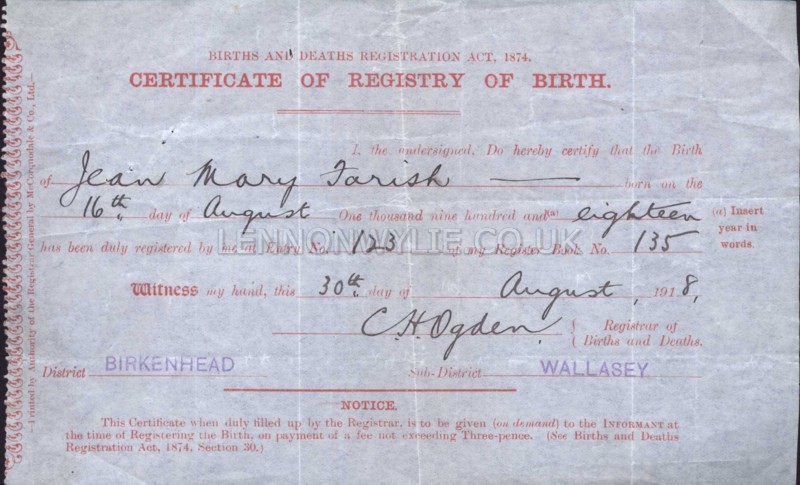 BIRTHS AND DEATHS REGISTRATION ACT, 1874.
CERTIFICATE OF REGISTRY OF BIRTH.
I, the undersigned, Do hereby certify that the Birth
of Jean Mary Farish born on the
16th day of August One thousand nine hundred and (a) eighteen
(a) Insert
year in
words.
has been duly registered by me at Entry No. 123 of my Register Book No. 135
LENNONWYLIE.CO.UK
Witness my hand, this 30th day of August, 1918,
C.H. Ogden.
Registrar of
Births and Deaths.
District BIRKENHEAD Sub-District WALLASEY
NOTICE.
This Certificate when duly filled up by the Registrar, is to be given (on demand) to the INFORMANT at
the time of Registering the Birth, on payment of a fee not exceeding Three-pence. (See Births and Deaths
Registration Act, 1874, Section 30.)
—Printed by Authority of the Registrar General by McCorquodale & Co., Ltd.—